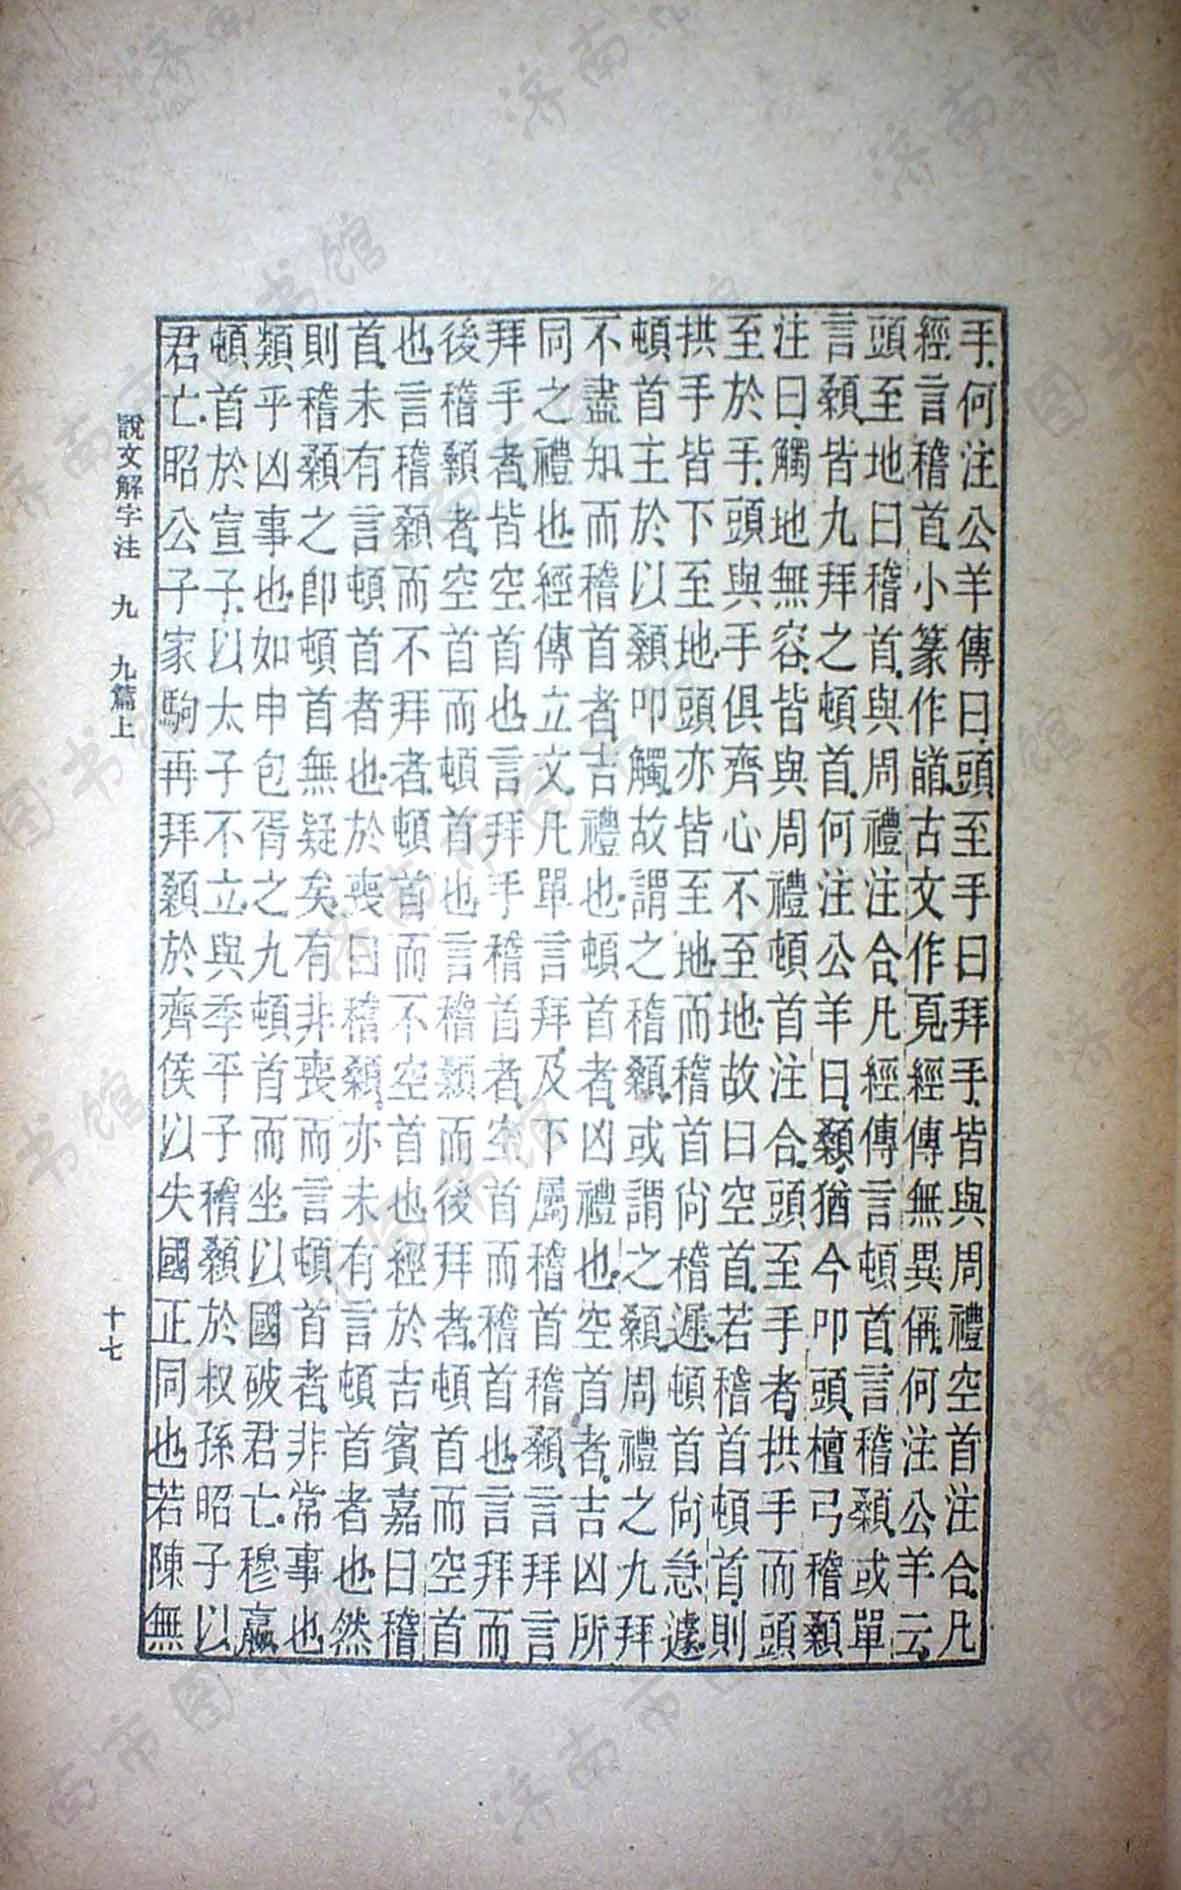 手何注公羊傳曰頭至手曰拜手皆與周禮空首注合凡
經言稽首小篆作䭫古文作頁經傳無異偁何注公羊云
頭至地曰稽首與周禮注合凡經傳言頓首言稽顙或單
言顙皆九拜之頓首何注公羊曰顙猶今叩頭檀弓稽顙
注曰觸地無容皆與周禮頓首注合頭至手者拱手而頭
至於手頭與手俱齊心不至地故曰空首若稽首頓首則
拱手皆下至地頭亦皆至地而稽首尙稽遲頓首尙急遽
頓首主於以顙叩觸故謂之稽顙或謂之顙周禮之九拜
不盡知而稽首者吉禮也頓首者凶禮也空首者吉凶所
同之禮也經傳立文凡單言拜及下屬稽首稽顙言拜言
拜手者皆空首也言拜手稽首者空首而稽首也言拜而
後稽顙者空首而頓首也言稽顙而後拜者頓首而空首
也言稽顙而不拜者頓首而不空首也經於吉賓嘉曰稽
首未有言頓首者也於喪曰稽顙亦未有言頓首者也然
則稽顙之卽頓首無疑矣有非喪而言頓首者非常事也
類乎凶事也如申包胥之九頓首而坐以國破君亡穆嬴
頓首於宣子以太子不立與季平子稽顙於叔孫昭子以
君亡昭公子家駒再拜顙於齊侯以失國正同也若陳無
說文解字注 九 九篇上 十七
济南市图书馆